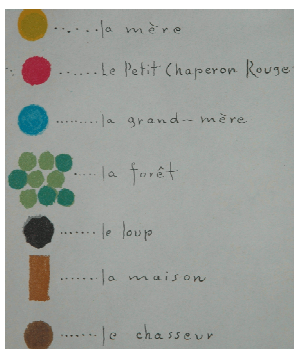 la mère
Le Petit Chaperon Rouge
la grand-mère
la forêt
le loup
la maison
le chasseur